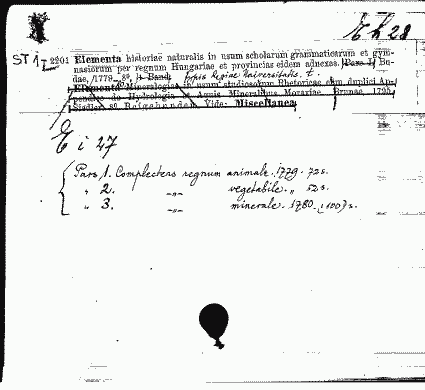 E h 28
ST 1-2201 Elementa historiae naturalis in usum scholarum grammaticarum et gym-
nasiorum per regnum Hungariae et provincias eidem adnexas. Pars I. Bu-
dae, 1779. 8º. 1 Band. typis Regiae Universitatis. t.
Elementa Mineralogiae in usum studiosorum Rhetoricae cum duplici Ap-
pendice de Hydrologia Aquis Mineralibus Moraviae. Brunae, 1795.
Siedler. 8º. Beigebunden. Vide: Miscellanea.
E i 27
Pars 1. Complectens regnum animale. 1779. 72s.
" 2. -"- vegetabile. " 52s.
" 3. -"- minerale. 1780. (100)s.